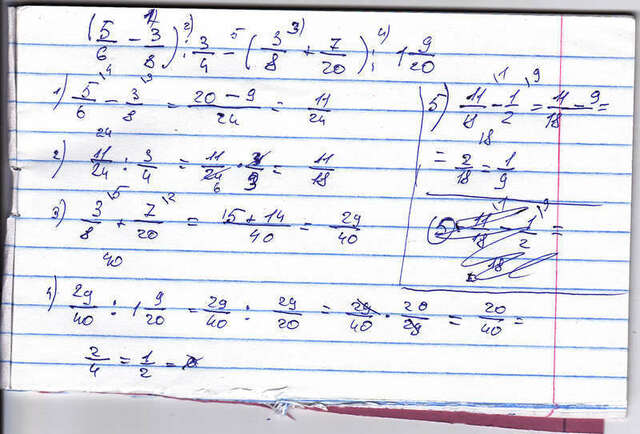 (5/6 − 3/8) : 3/4 − (3/8 + 7/20) : 1 9/20
1) 5/6 − 3/8 = 20 − 9/24 = 11/24
24
2) 11/24 : 3/4 = 11/24 · 4/3 = 11/18
6
3) 3/8 + 7/20 = 15 + 14/40 = 29/40
40
4) 29/40 : 1 9/20 = 29/40 : 29/20 = 29/40 · 20/29 = 20/40 =
2/4 = 1/2 =
5) 11/18 − 1/2 = 11 − 9/18 =
18
= 2/18 = 1/9
5 11/18 − 1/2 =
18